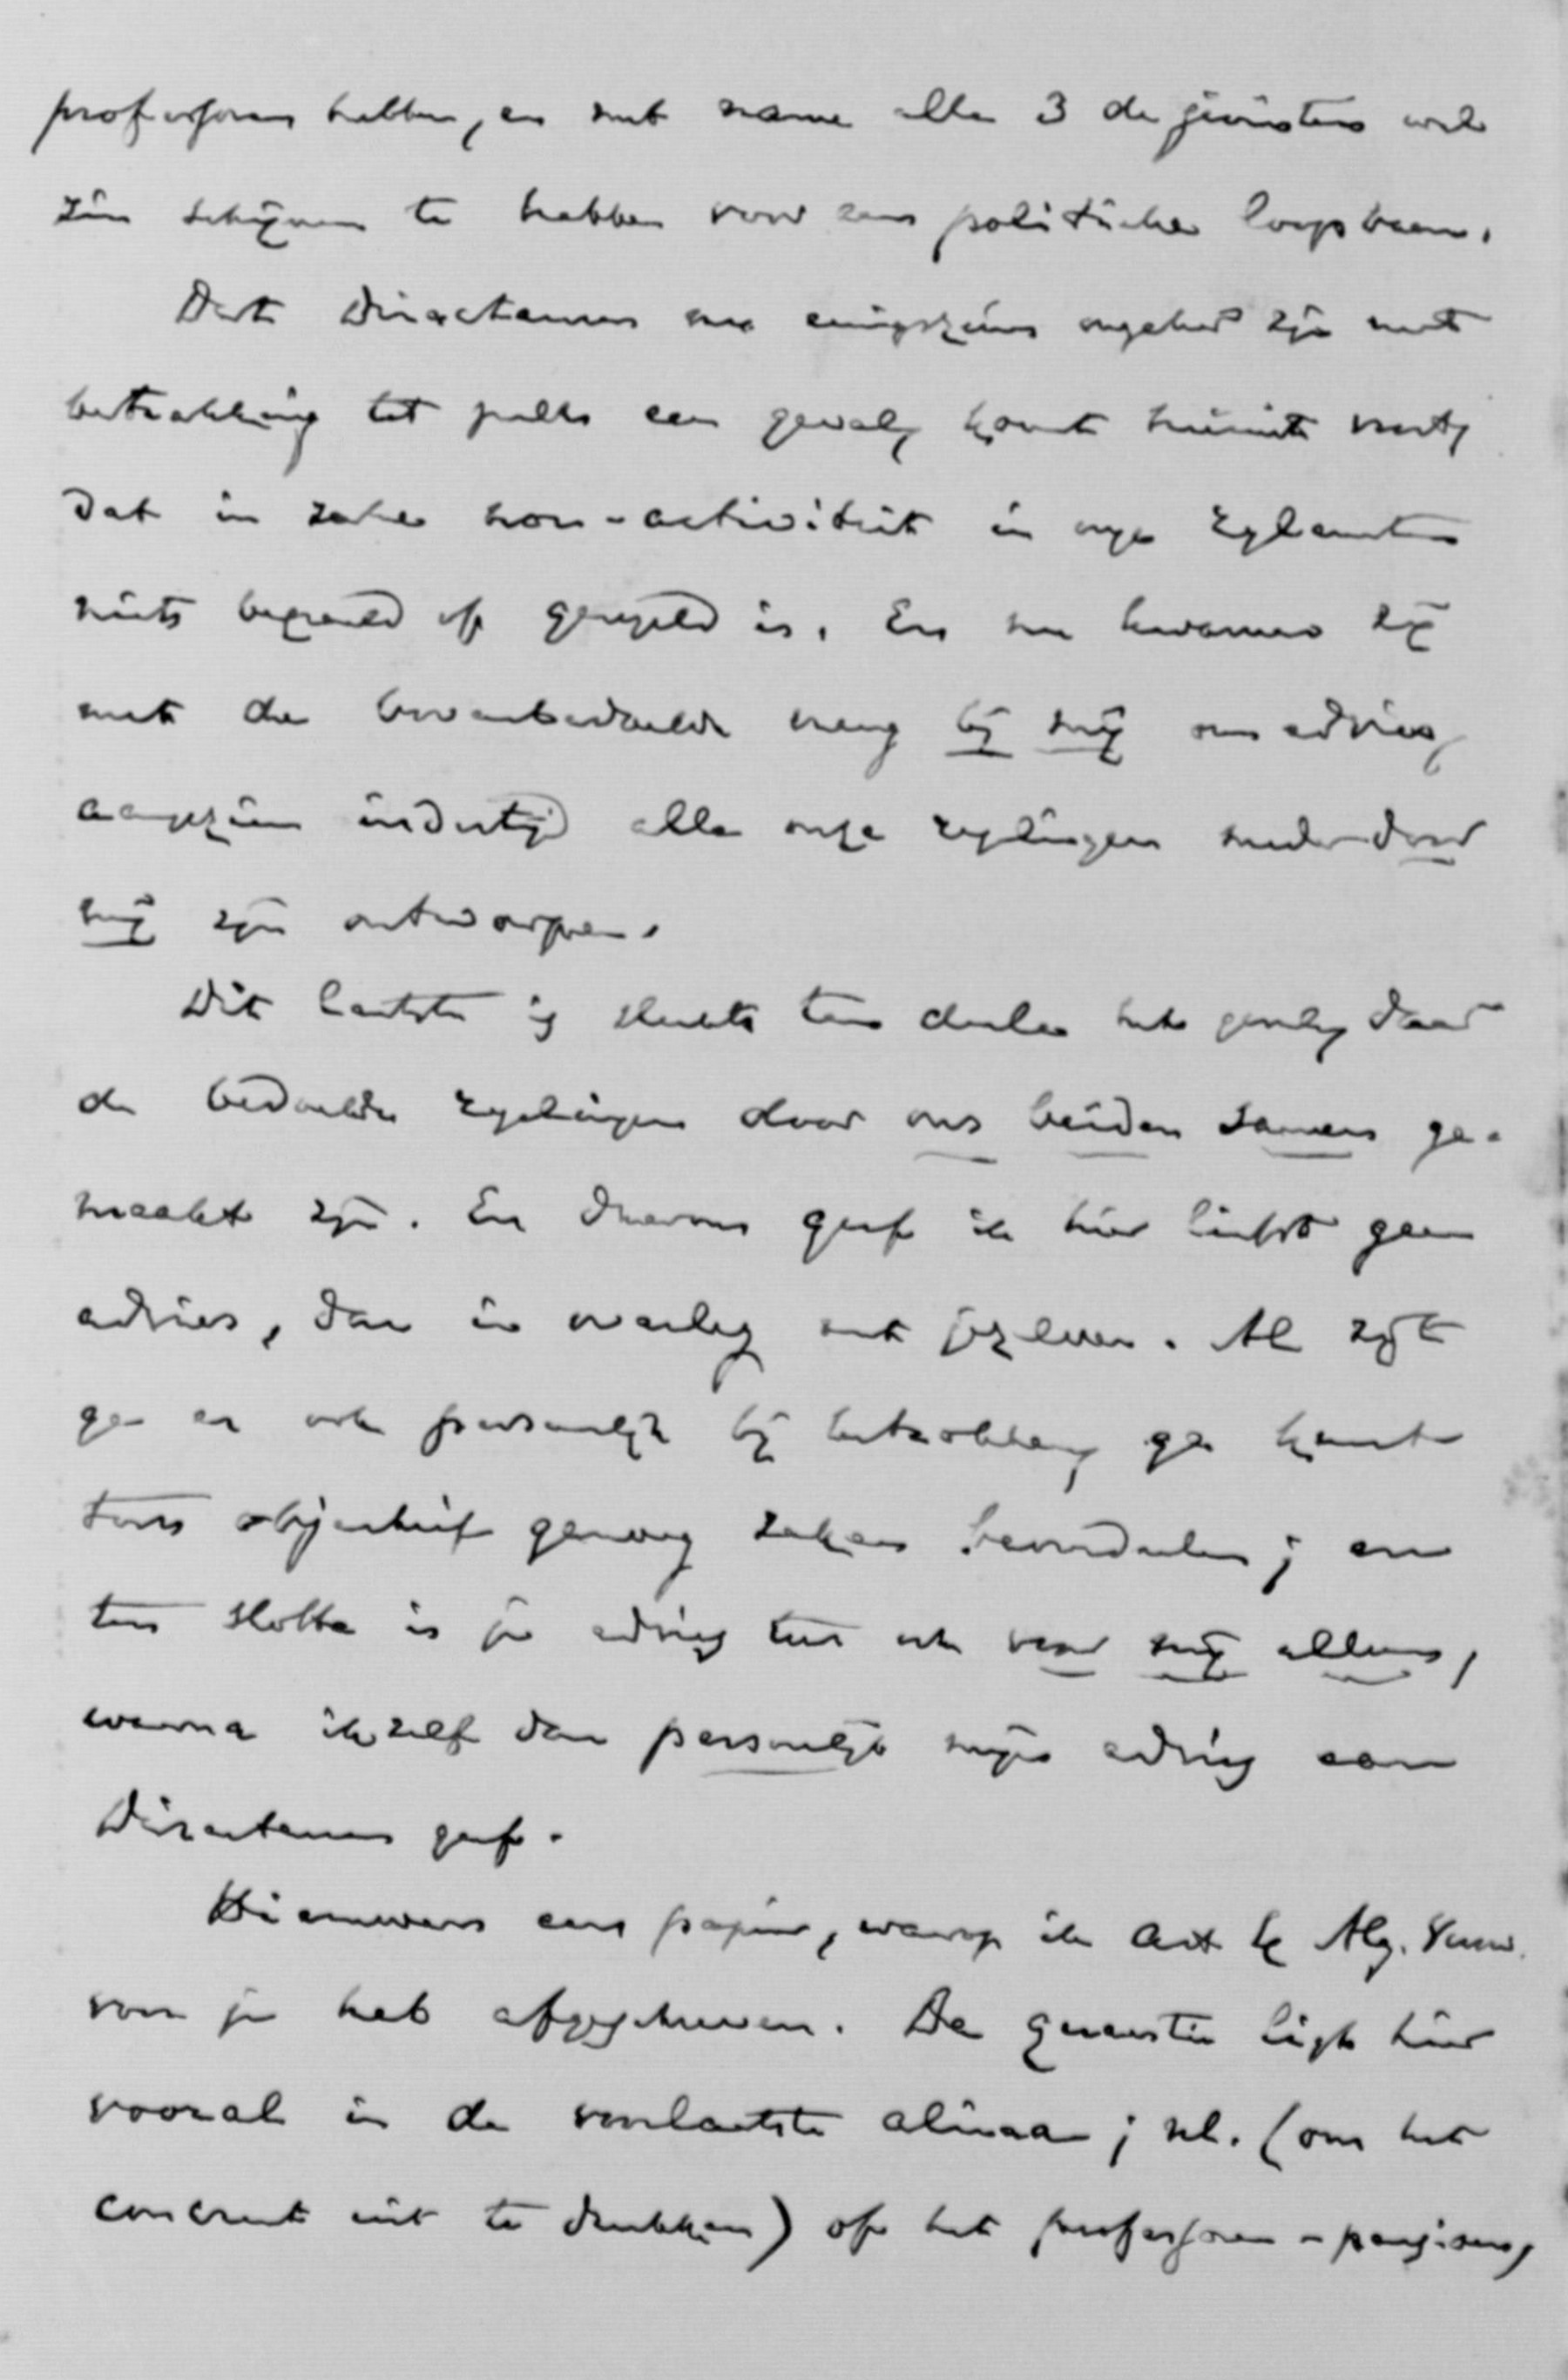 professoren hebben, en met name alle 3 de juristen wel
zin schijnen te hebben voor een politieke loopbaan.
Dat Directeuren nu eenigszins ongerust zijn met
betrekking tot zulk een geval, komt hieruit voort,
dat in zake non-activiteit in onze reglementen
niets bepaald of geregeld is. En nu kwamen zij
met de bovenbedoelde vraag bij mij om advies,
aangezien indertijd alle onze regelingen mede door
mij zijn ontworpen.
Dit laatste is slechts ten deele het geval, daar
de bedoelde regelingen door ons beiden samen ge-
maakt zijn. En daarom geef ik hier liefst geen
advies, dan in overleg met jezelven. Al zijt
ge er ook persoonlijk bij betrokken, ge kunt
toch objectief genoeg zaken beoordeelen; en
ten slotte is je advies hier ook voor mij alleen,
waarna ikzelf dan persoonlijk mijn advies aan
Directeuren geef.
Hiernevens een papier, waarop ik Art Alg.
voor je heb afgeschreven. De quaestie ligt hier
vooral in de voorlaatste alinea; nl. (om het
concreet uit te drukken) of het professoren-pensioen,